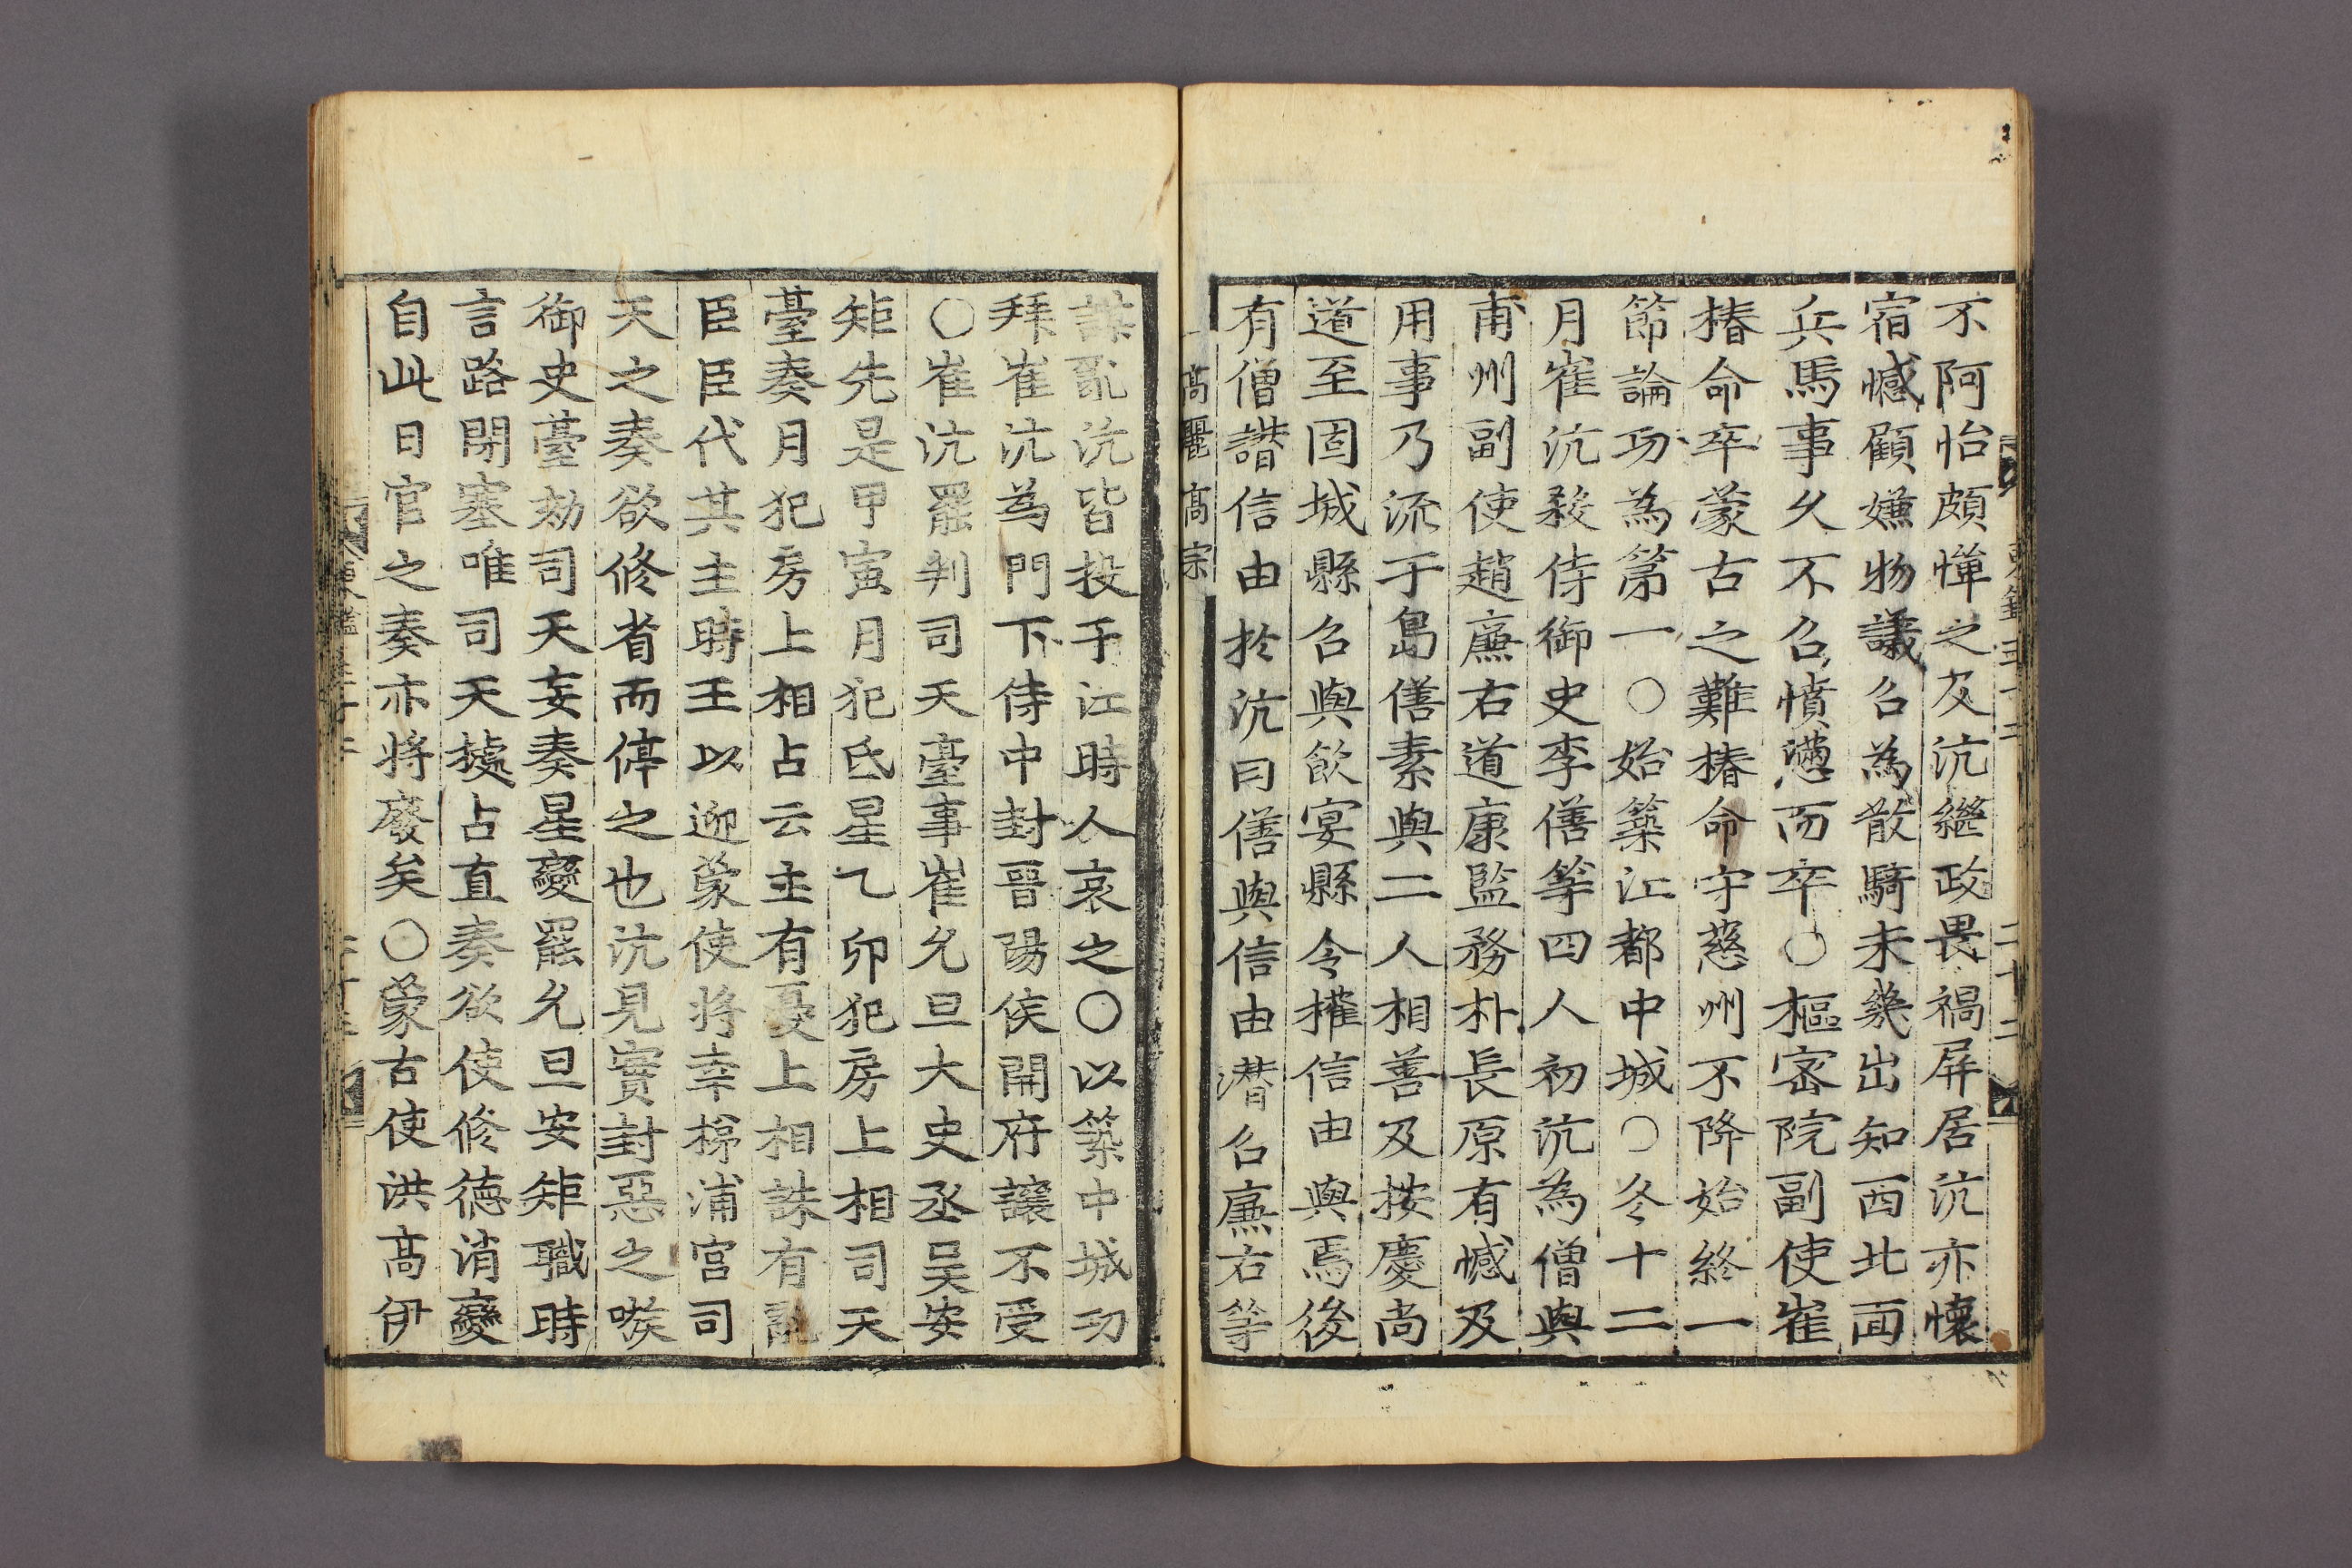 不阿怡頗憚之及沆繼政畏禍屏居沆亦懷
宿憾顧嫌物議召為散騎未幾出知西北面
兵馬事久不召憤懣而卒○樞密院副使崔
椿命卒蒙古之難椿命守慈州不降始終一
節論功為第一○始築江都中城○冬十二
月崔沆殺侍御史李僐等四人初沆為僧與
甫州副使趙廉右道康監務朴長原有憾及
用事乃流于島僐素與二人相善及按慶尚
道至固城縣召與飲宴縣令權信由與焉後
有僧譖信由於沆曰僐與信由潛召廉右等
高麗高宗
謀亂沆皆投于江時人哀之○以築中城功
拜崔沆為門下侍中封晉陽侯開府讓不受
○崔沆罷判司天臺事崔允旦大史丞吳安
矩先是甲寅月犯氐星乙卯犯房上相司天
臺奏月犯房上相占云主有憂上相誅有亂
臣臣代其主時王以迎蒙使將幸梯浦宮司
天之奏欲修省而停之也沆見實封惡之嗾
御史臺劾司天妄奏星變罷允旦安矩職時
言路閉塞唯司天據占直奏欲使修德消變
自此日官之奏亦將廢矣○蒙古使洪高伊